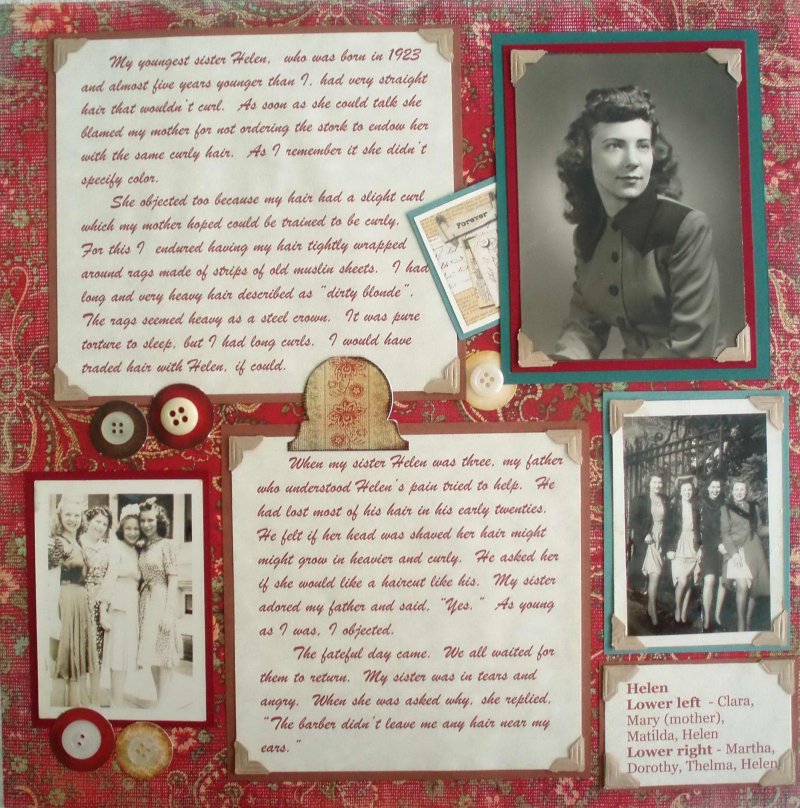 My youngest sister Helen, who was born in 1923
and almost five years younger than I, had very straight
hair that wouldn't curl. As soon as she could talk she
blamed my mother for not ordering the stork to endow her
with the same curly hair. As I remember it she didn't
specify color.
She objected too because my hair had a slight curl
which my mother hoped could be trained to be curly.
For this I endured having my hair tightly wrapped
around rags made of strips of old muslin sheets. I had
long and very heavy hair described as "dirty blonde".
The rags seemed heavy as a steel crown. It was pure
torture to sleep, but I had long curls. I would have
traded hair with Helen, if could.
Forever
When my sister Helen was three, my father
who understood Helen's pain tried to help. He
had lost most of his hair in his early twenties.
He felt if her head was shaved her hair might
might grow in heavier and curly. He asked her
if she would like a haircut like his. My sister
adored my father and said, "Yes." As young
as I was, I objected.
The fateful day came. We all waited for
them to return. My sister was in tears and
angry. When she was asked why, she replied,
"The barber didn't leave me any hair near my
ears."
Helen
Lower left - Clara,
Mary (mother),
Matilda, Helen
Lower right - Martha,
Dorothy, Thelma, Helen